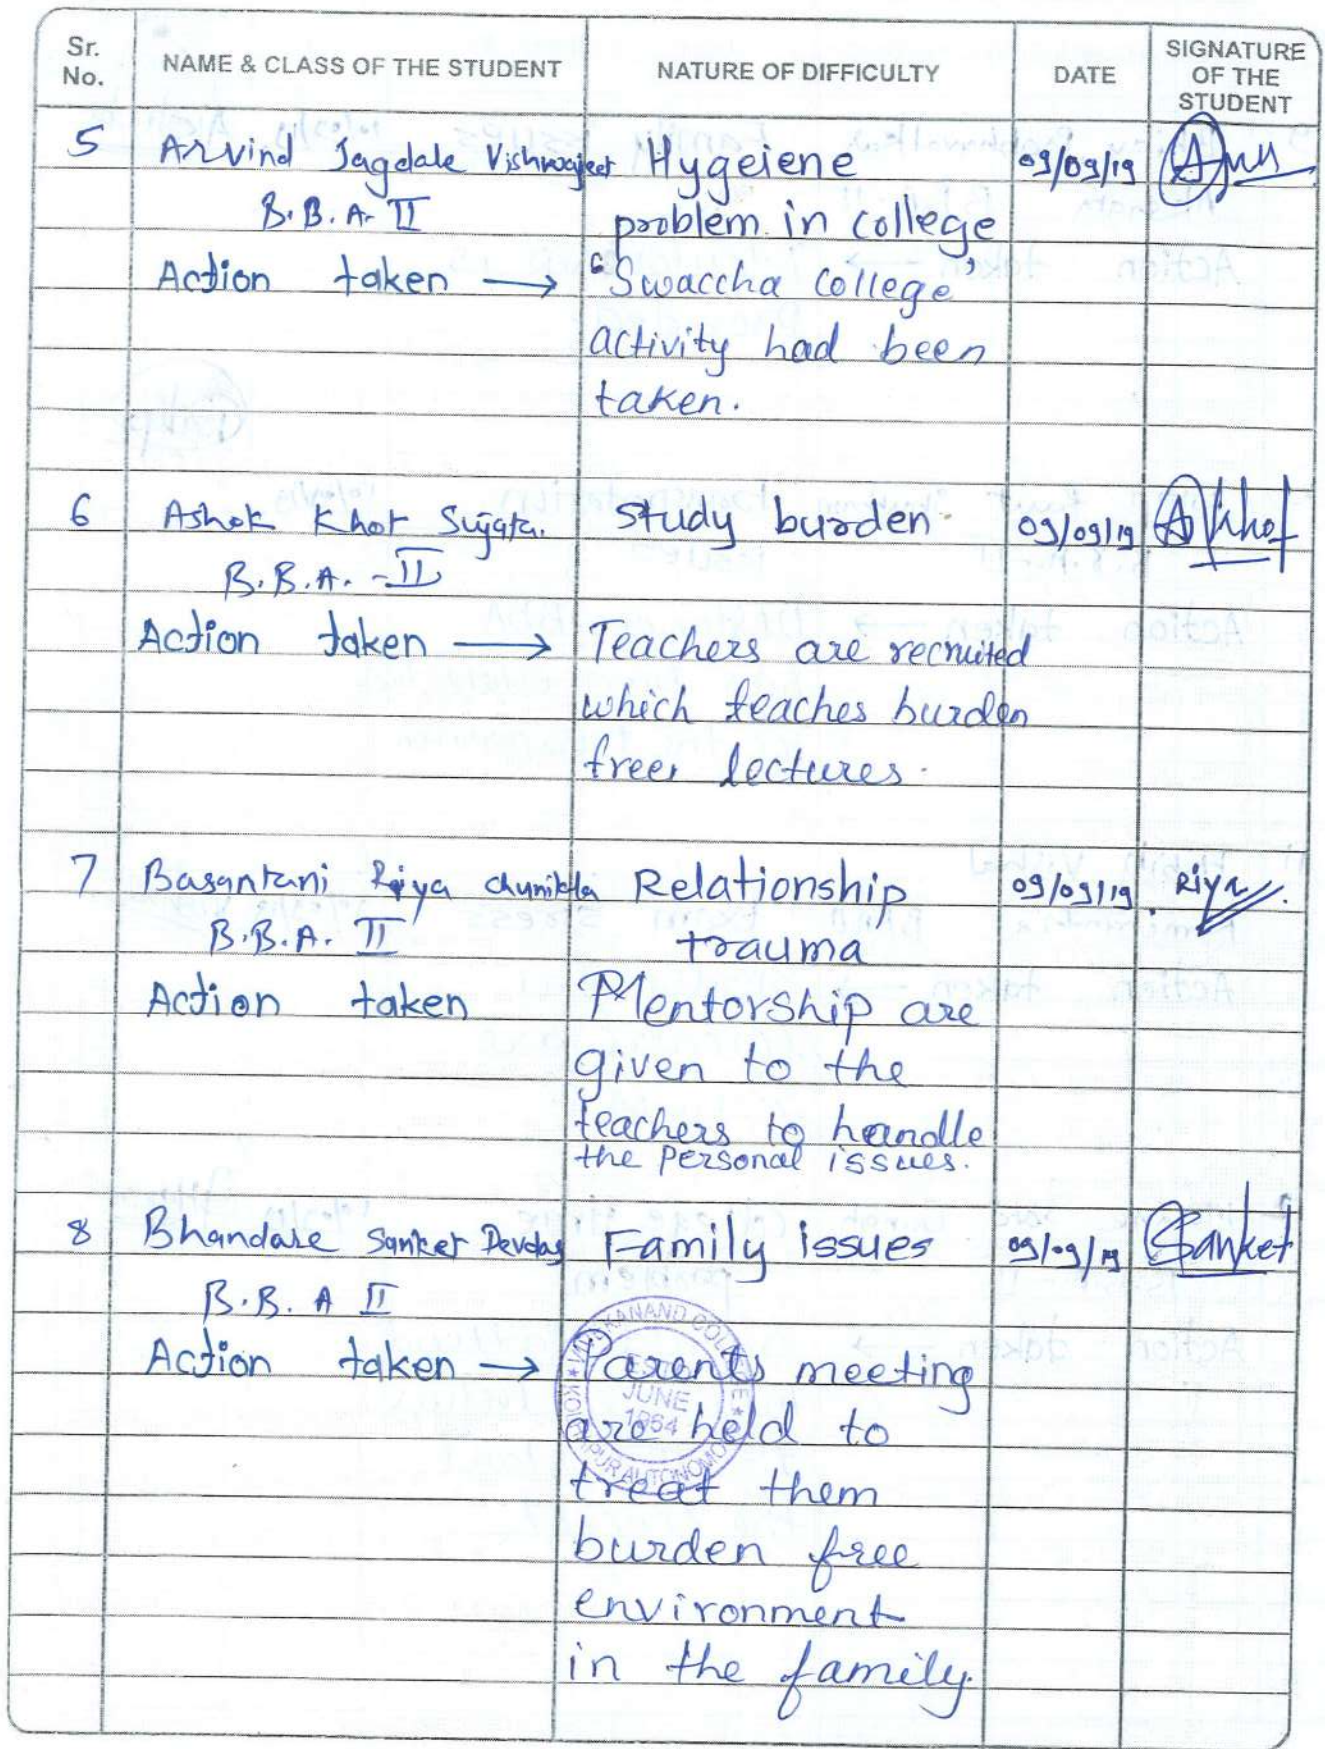 Sr. No. NAME & CLASS OF THE STUDENT NATURE OF DIFFICULTY DATE SIGNATURE OF THE STUDENT
5 Arvind Jagdale Vishwajeet Hygeiene 09/09/19
B.B.A. II problem in college
Action taken → "Swaccha college'
activity had been
taken.
6 Ashok Khot Sujata. Study burden. 09/09/19 A Khot
B.B.A. - II
Action taken → Teachers are recruited
which teaches burden
free, lectures.
7 Basantani Riya chunilla Relationship 09/09/19. Riya
B.B.A. II trauma
Action taken Mentorship are
given to the
teachers to handle
the personal issues.
8 Bhandare Sanket Devdas Family issues 09/09/19 Sanket
B.B. A II
Action taken → Parents meeting
are held to
treat them
burden free
environment
in the family.
VIVEKANAND COLLEGE ★ KOLHAPUR AUTONOMOUS ★
ESTD JUNE 1964